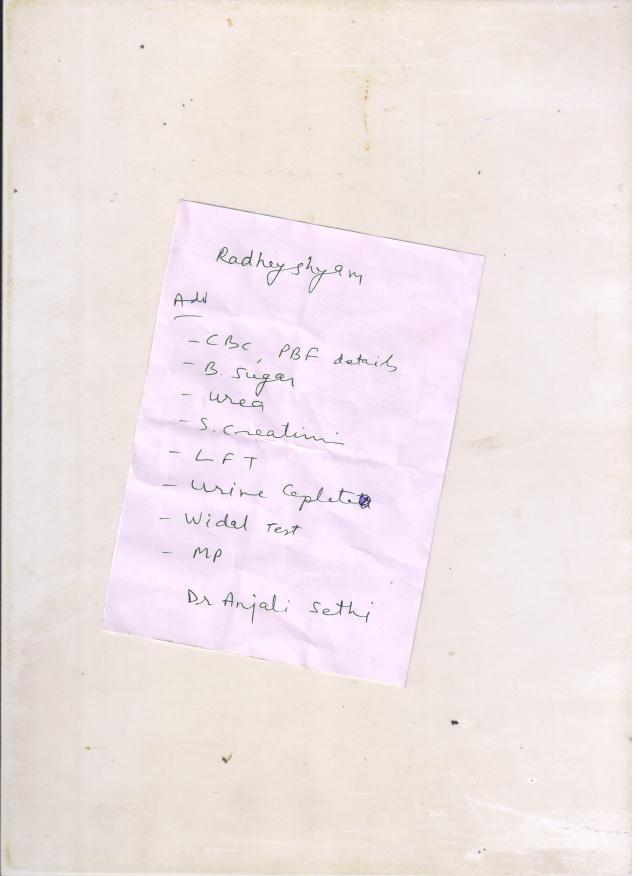 Radheyshyam
Adv
- CBC, PBF details
- B. Sugar
- Urea
- S. Creatinin
- LFT
- Urine Coplete
- Widal Test
- MP
Dr Anjali Sethi